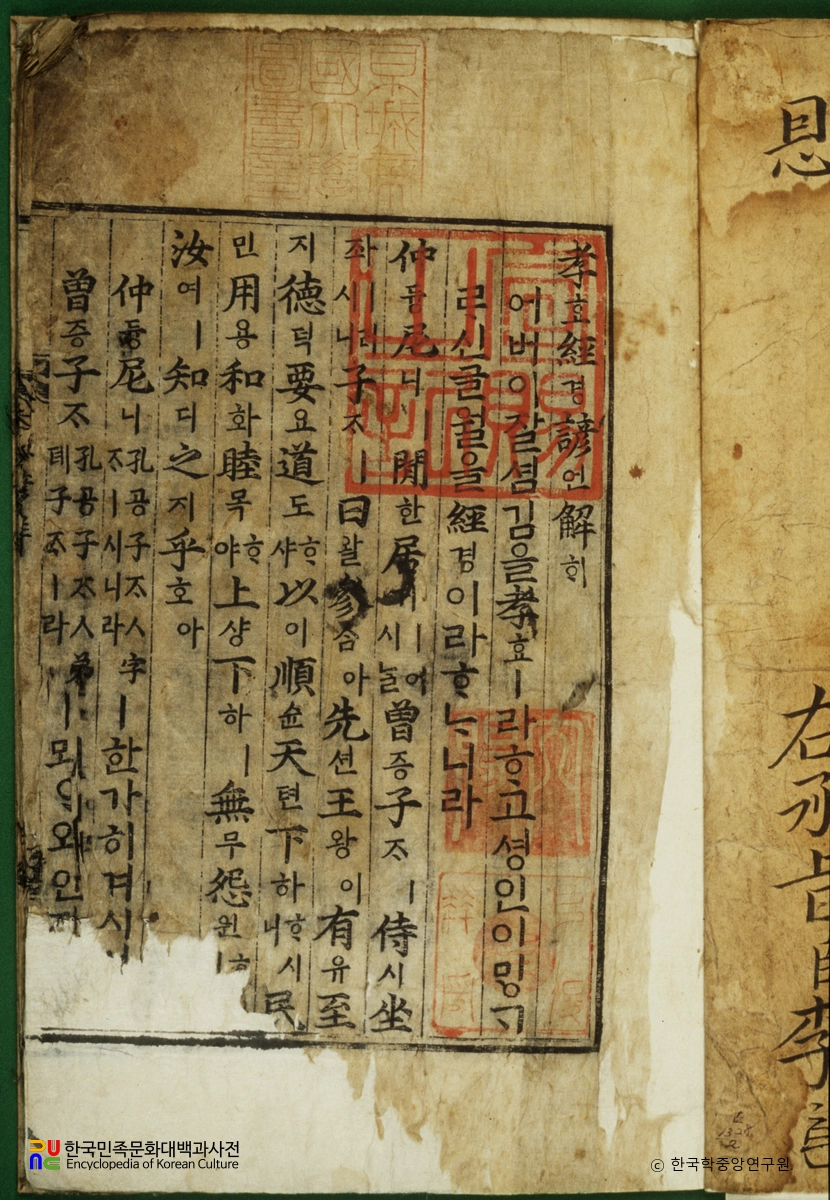 恩
右承旨臣李
京城帝
國大學
圖書章
孝효經경諺언解ᄒᆡ
어버이잘셤김을孝효ㅣ라ᄒᆞ고셩인이ᄆᆡᆼᄀᆞ
ᄅᆞ신글월을經경이라ᄒᆞᄂᆞ니라
仲듕尼니ㅣ閒한居시曾증子ᄌᆞㅣ侍시坐
좌ㅣ러시니子ᄌᆞㅣ曰왈參ᄉᆞᆷ아先션王왕이有유至
지德덕要요道도ᄒᆞ샤以이順슌天텬下하ᄒᆞ시니民
민用용和화睦목ᄒᆞ야上샹下하ㅣ無무怨원ᄒᆞ
汝여ㅣ知디之지乎호아
仲듕尼니孔공子ᄌᆞㅅ字ᄌᆞㅣ시니라ㅣ한가히겨시
曾증子ᄌᆞ孔공子ᄌᆞㅅ弟뎨子ᄌᆞㅣ라ㅣ뫼ᄋᆞ와안
한국민족문화대백과사전
Encyclopedia of Korean Culture
© 한국학중앙연구원